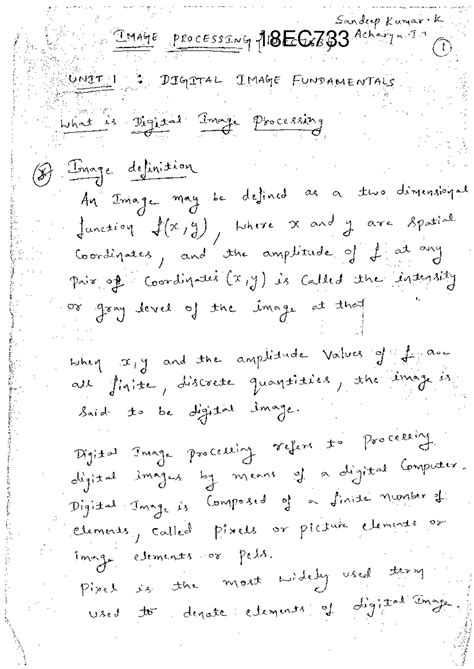 Sandeep Kumar. K
IMAGE PROCESSING 18EC733 Acharya.I.
1
UNIT 1 : DIGITAL IMAGE FUNDAMENTALS
What is Digital Image Processing
Image definition
An Image may be defined as a two dimensional
function f(x,y), where x and y are spatial
Coordinates, and the amplitude of f at any
Pair of Coordinates (x,y) is called the intensity
or gray level of the image at that
When x,y and the amplitude values of f are
all finite, discrete quantities, the image is
Said to be digital image.
Digital Image processing refers to processing
digital images by means of a digital Computer.
Digital Image is Composed of a finite number of
elements, called Pixels or picture elements or
image elements or pels.
Pixel is the most widely used term
used to denote elements of digital Image.